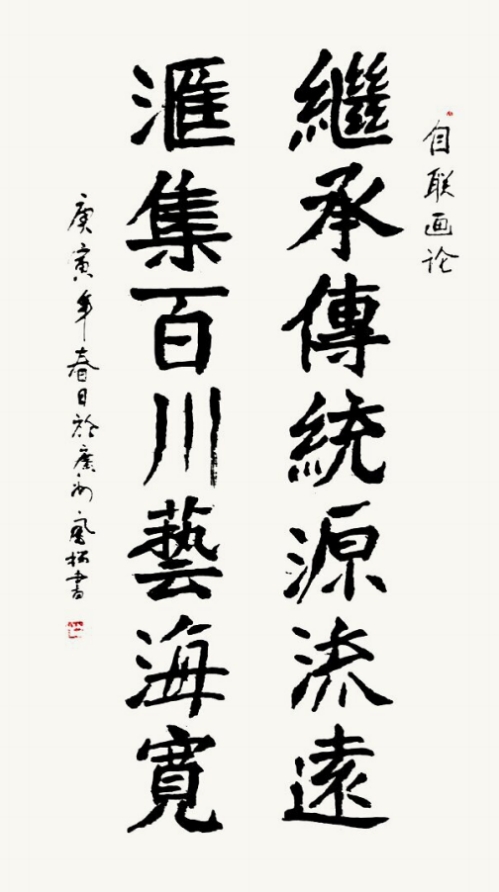 自联画论
繼承傳統源流遠
滙集百川藝海寬
庚寅年春日於廣州
書